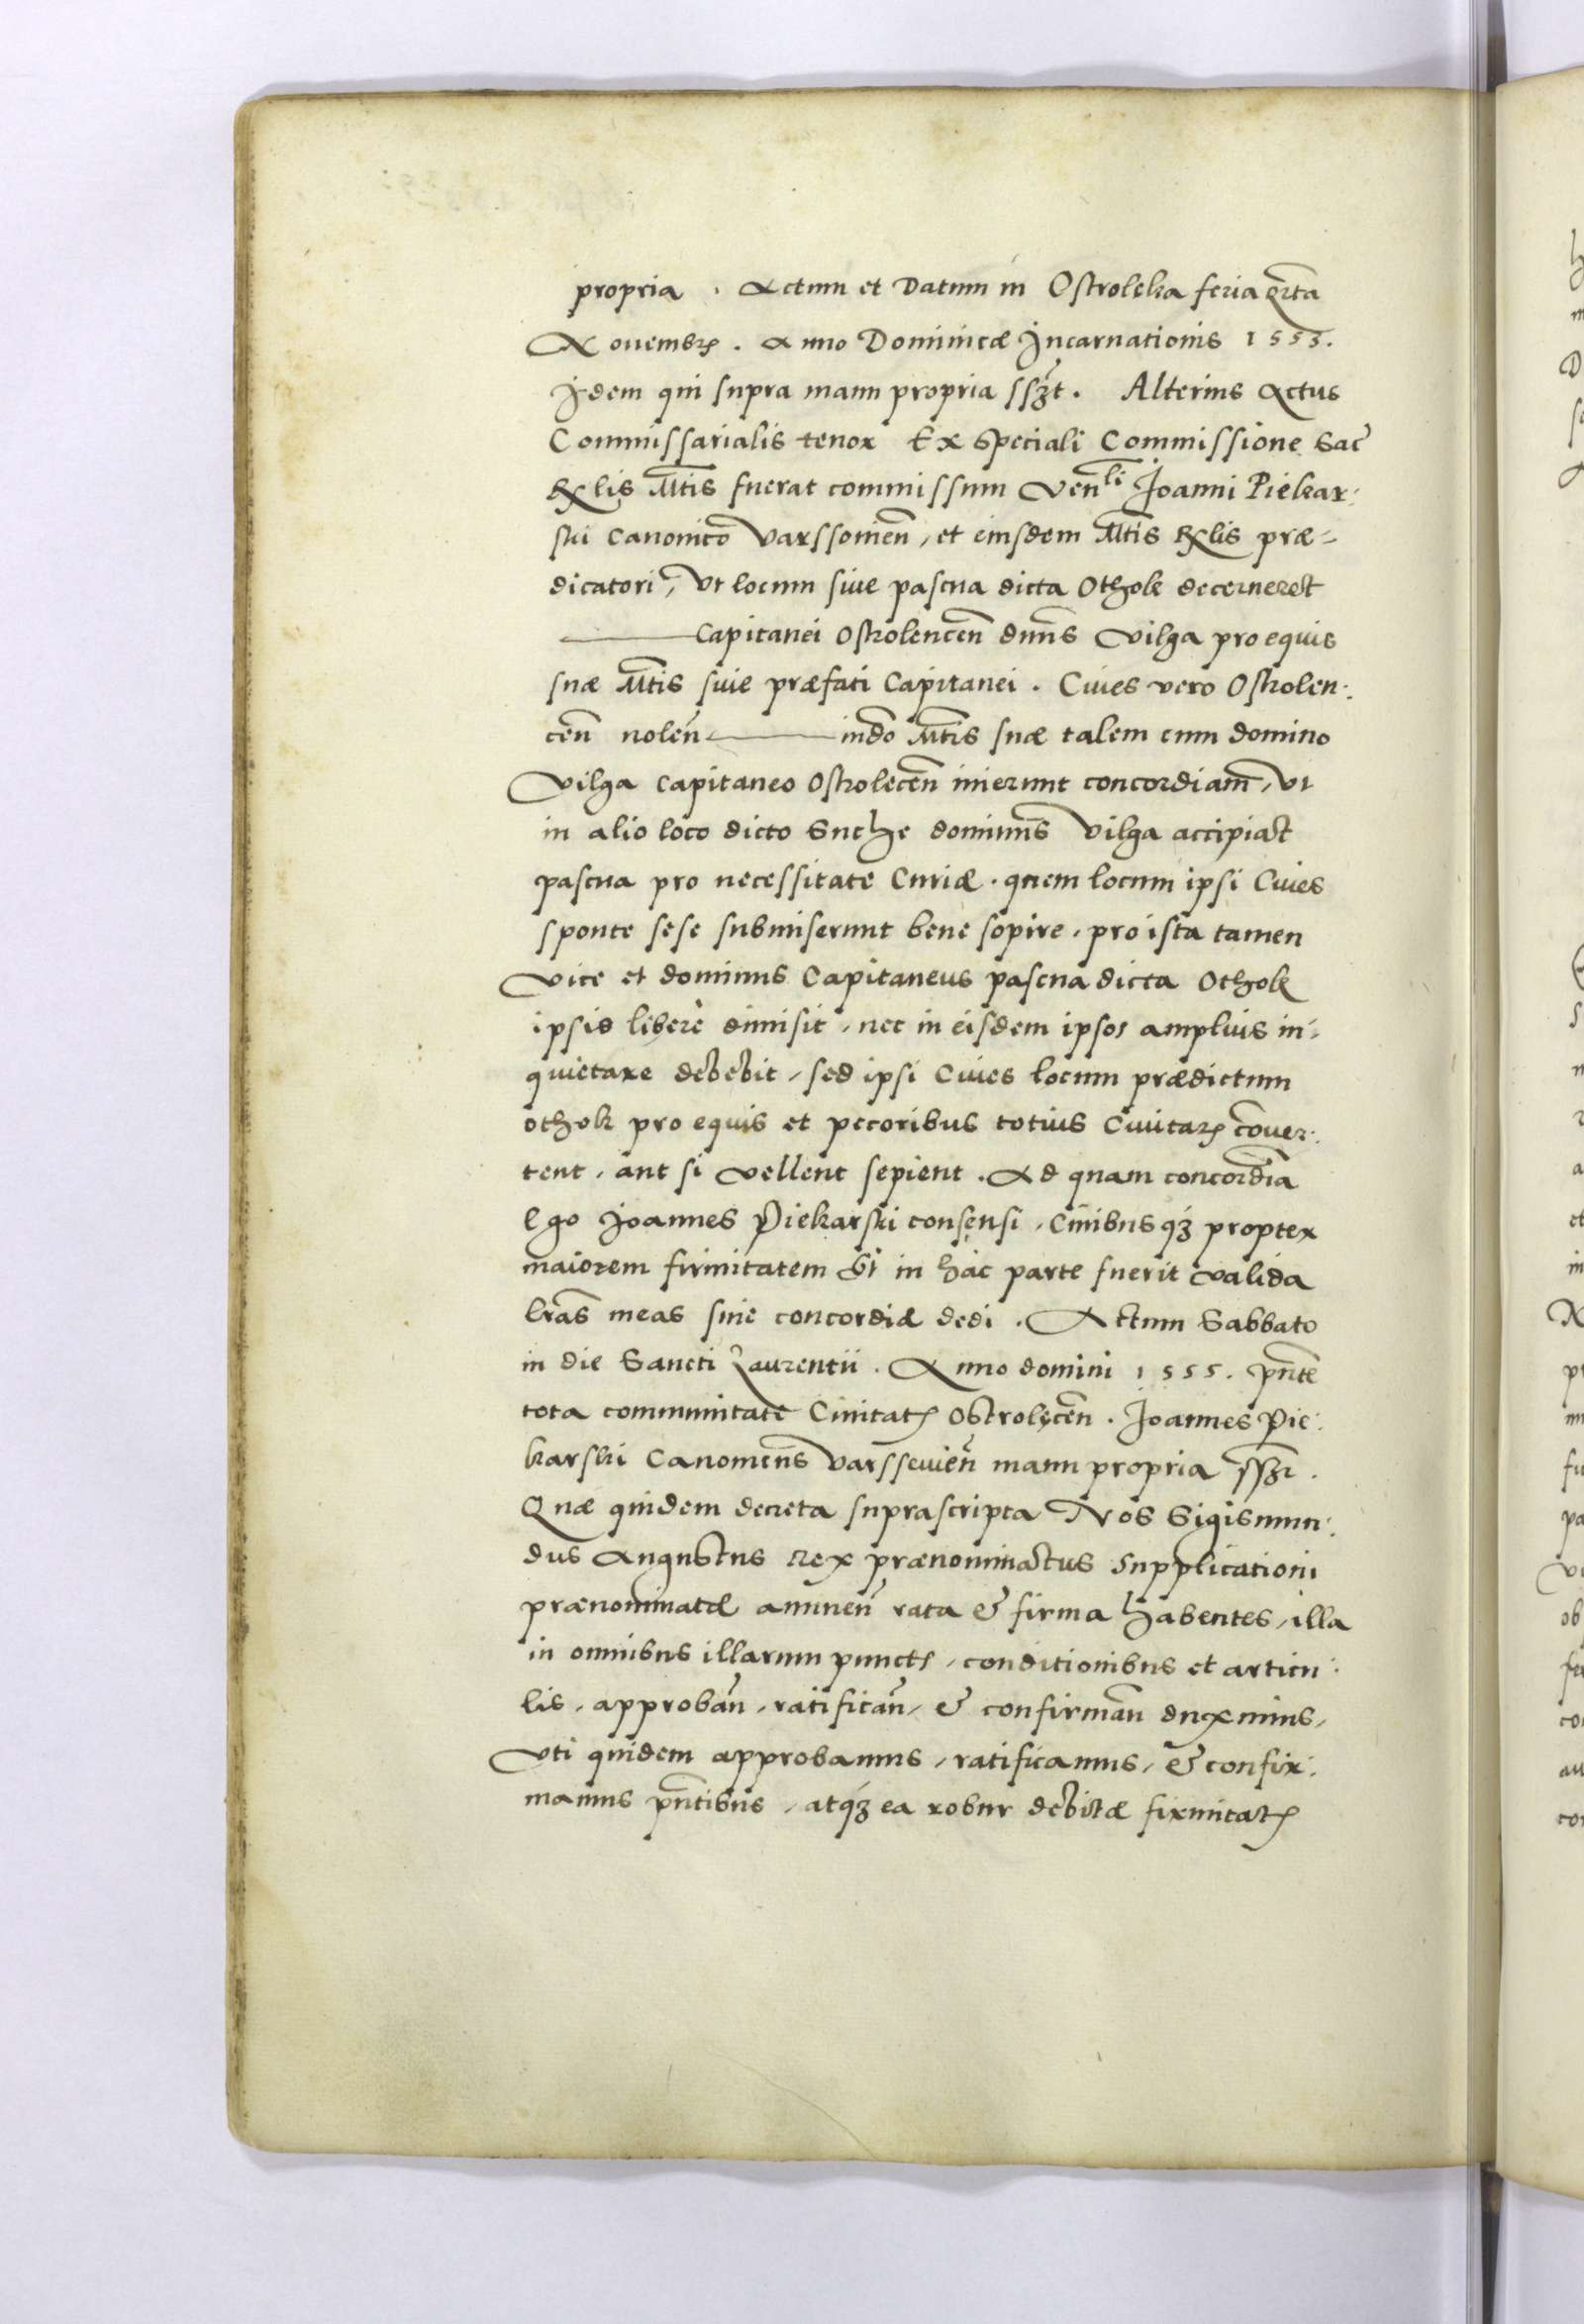 propria . Actum et Datum in Ostroleka feria qr̃ta
Nouembr̃ . Anno Dominicæ Incarnationis 1553.
Idem qui supra manu propria sszt. Alterius Actus
Commissarialis tenor Ex speciali Commissione Sac̃
Rx̃lis Mt̃is fuerat commissum Ven̄li Joanni Piekar:
ski Canonico Varssouien̄, et eiusdem Mt̃is Rx̃lis præ=
dicatori, vt locum siue pascua dicta Othok decerneret
Capitanei Ostrolencen̄ dnũs Vilga pro equis
suæ Mt̃is siue præfati Capitanei . Ciues vero Ostrolen:
cen̄ nolen̄ ——— indo Mt̃is suæ talem cum domino
Vilga Capitaneo Ostrolecen̄ inierunt concordiam̄, vt
in alio loco dicto Suche dominus Vilga accipiat
pascua pro necessitate Curiæ . quem locum ipsi Ciues
sponte sese submiserunt bene sopire, pro ista tamen
vice et dominus Capitaneus pascua dicta Othok
ipsis liberè dimisit, nec in eisdem ipsos amplius in=
quietare debebit, sed ipsi Ciues locum prædictum
othok pro equis et pecoribus totius Ciuitat̃ cõuer:
tent, aut si vellent sepient . Ad quam concordiã
Ego Joannes Piekarski consensi, Ciuibus qz propter
maiorem firmitatem vt in hac parte fuerit valida
lr̃as meas siue concordiæ dedi . Actum Sabbato
in die Sancti Laurentii . Anno domini 1555. pñte
tota communitate Ciuitat̃ Ostrolęcen̄ . Joannes Pie:
karski Canonicus Varsseuien̄ manu propria sszt .
Quæ quidem decreta suprascripta Nos Sigismun:
dus Augustus Rex prænominatus Supplicationi
prænominatæ annuen̄ rata & firma habentes, illa
in omnibus illarum punct̃, conditionibus et articu:
lis, approban̄, ratifican̄, & confirman̄ duximus,
vti quidem approbamus, ratificamus, & confir:
mamus pñtibus, atqz ea robur debitæ firmitat̃